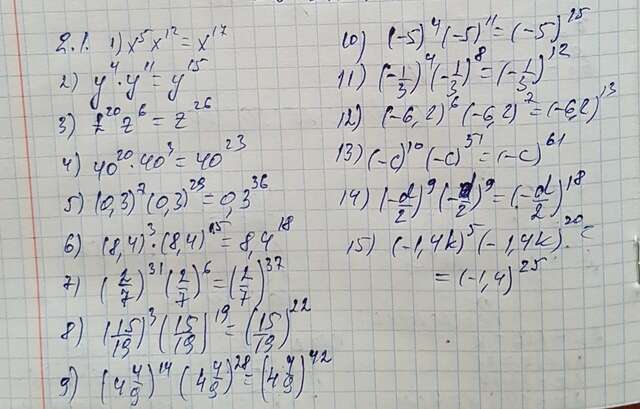 2.1. 1) x⁵x¹²=x¹⁷
2) y⁴·y¹¹=y¹⁵
3) z²⁰z⁶=z²⁶
4) 40²⁰·40³=40²³
5) (0,3)⁷(0,3)²⁹=0,3³⁶
6) (8,4)³·(8,4)¹⁵=8,4¹⁸
7) (2/7)³¹(2/7)⁶=(2/7)³⁷
8) (15/19)³(15/19)¹⁹=(15/19)²²
9) (4 4/9)¹⁴(4 4/9)²⁸=(4 4/9)⁴²
10) (-5)⁴(-5)¹¹=(-5)¹⁵
11) (-1/3)⁴(-1/3)⁸=(-1/3)¹²
12) (-6,2)⁶(-6,2)⁷=(-6,2)¹³
13) (-c)¹⁰(-c)⁵¹=(-c)⁶¹
14) (-d/2)⁹(-d/2)⁹=(-d/2)¹⁸
15) (-1,4k)⁵(-1,4k)²⁰.=
=(-1,4)²⁵